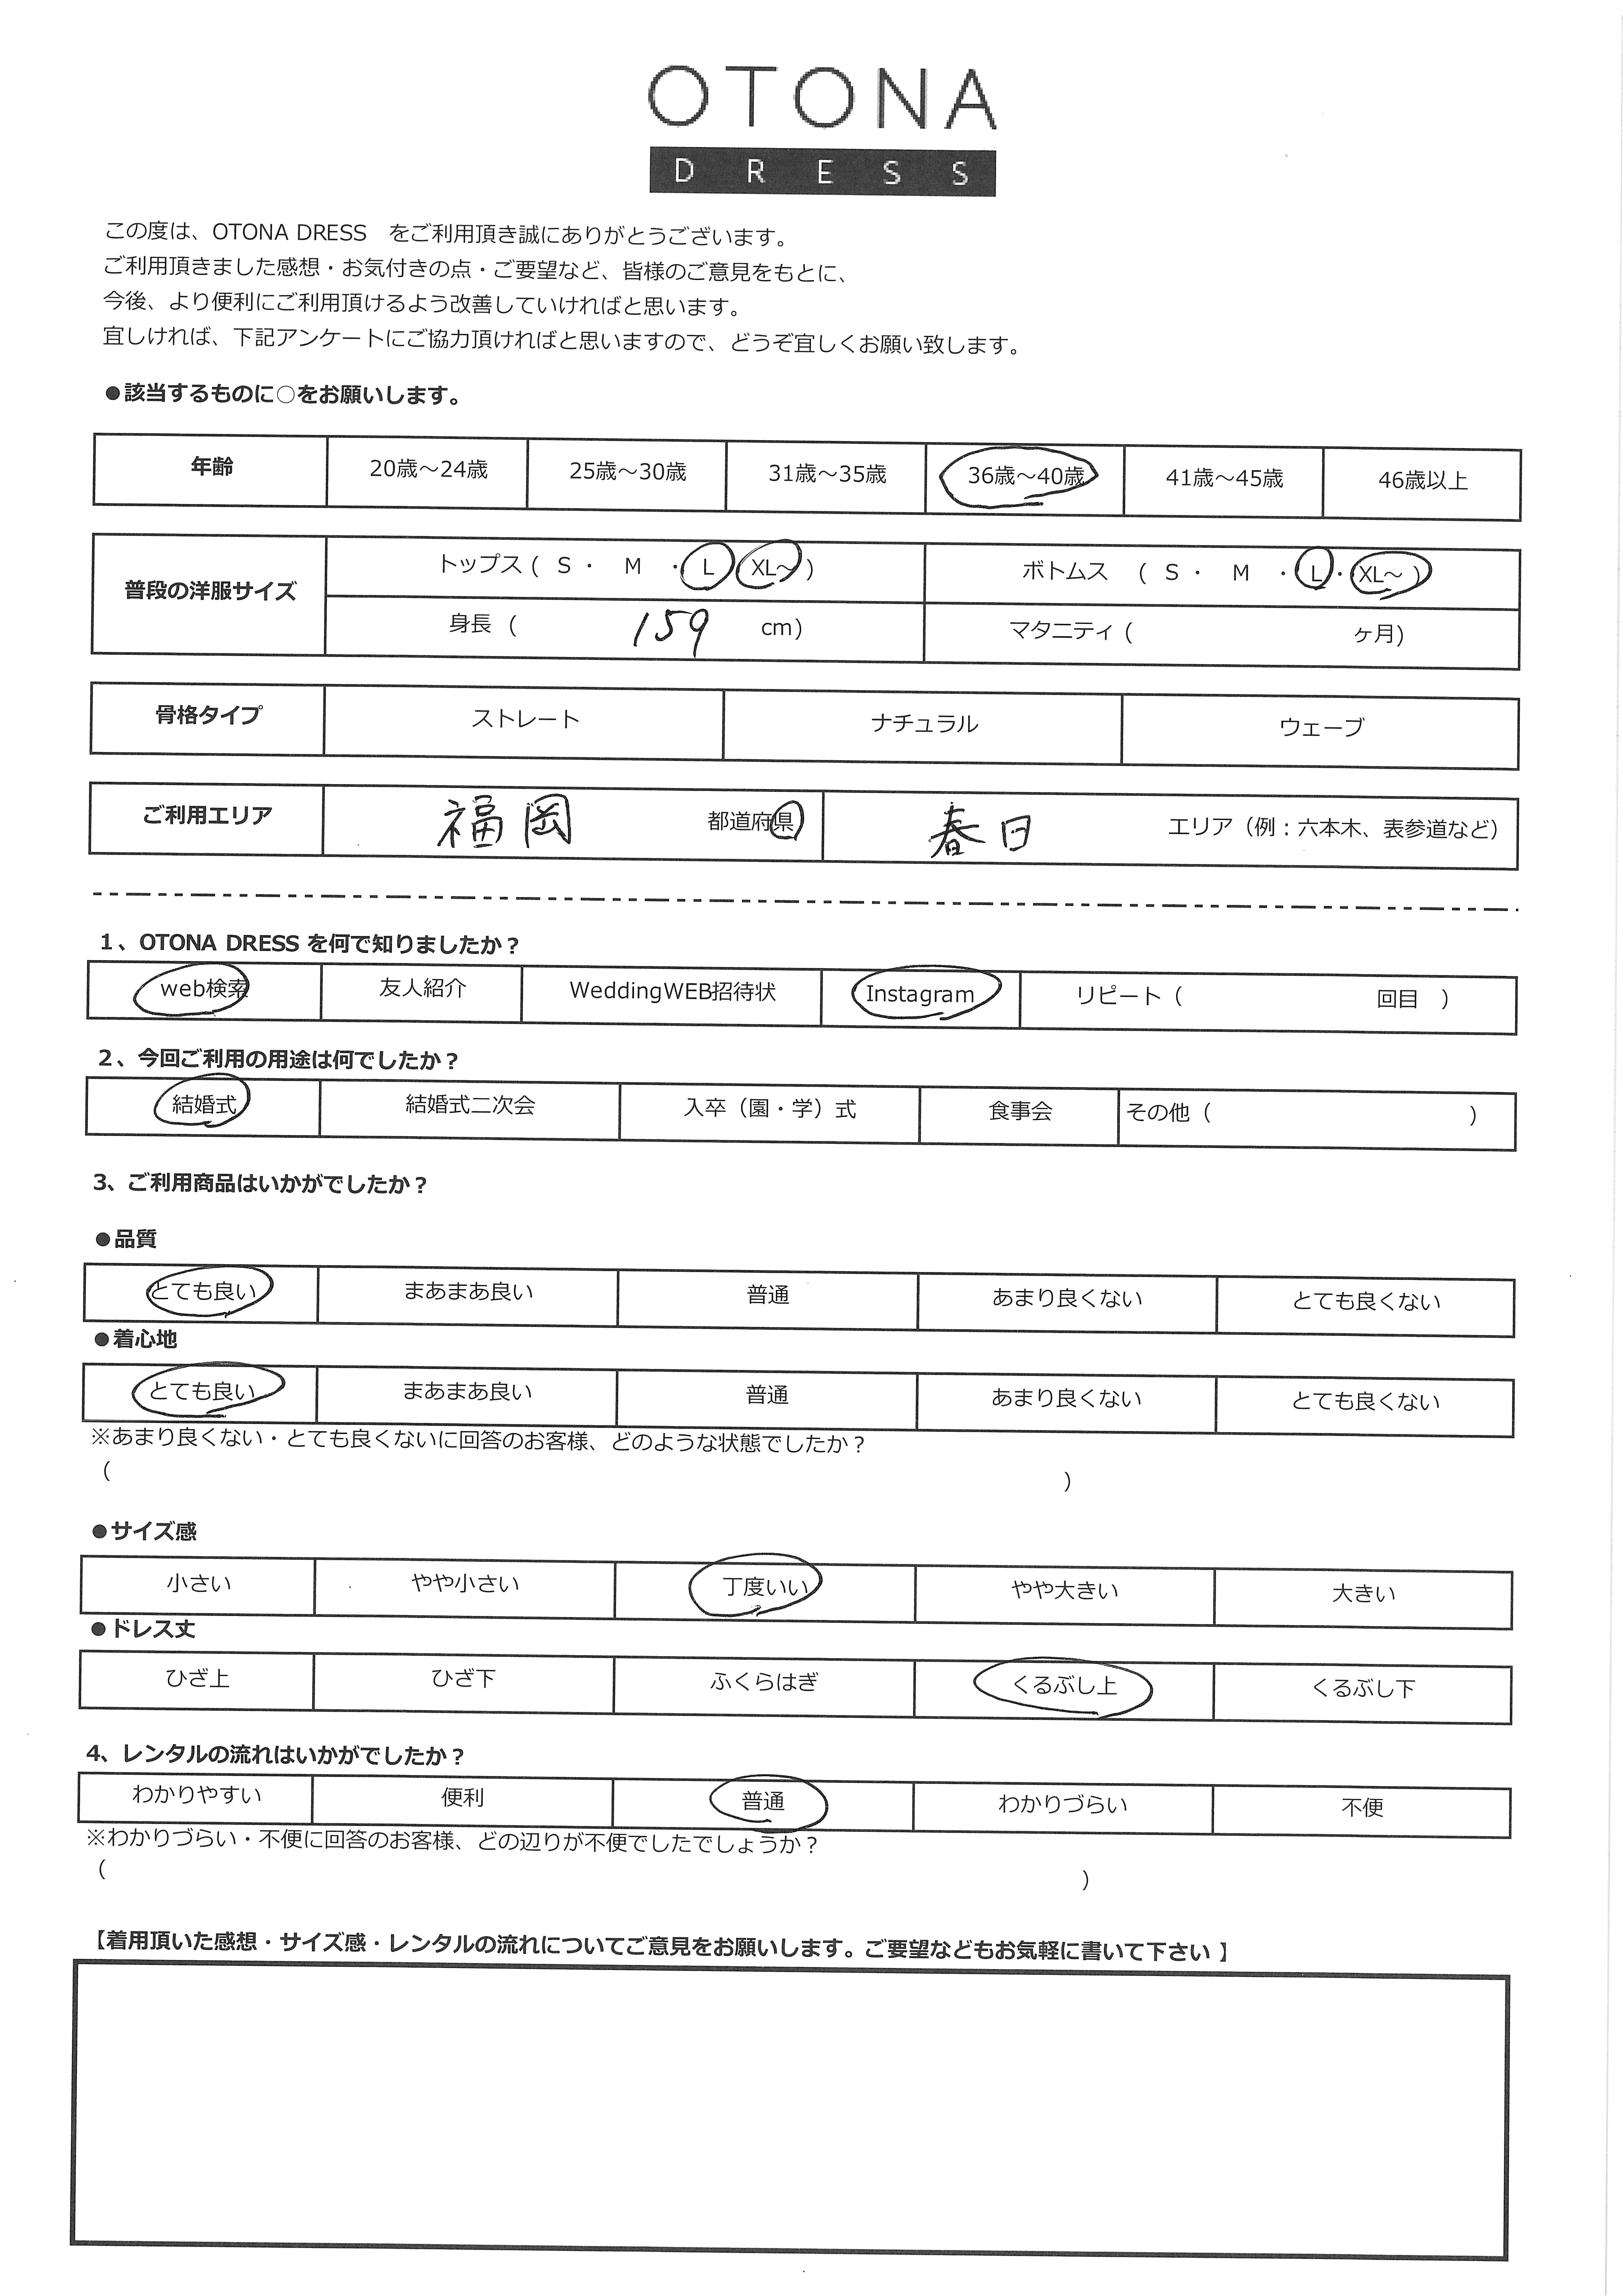 OTONA
DRESS
この度は、OTONA DRESS　をご利用頂き誠にありがとうございます。
ご利用頂きました感想・お気付きの点・ご要望など、皆様のご意見をもとに、
今後、より便利にご利用頂けるよう改善していければと思います。
宜しければ、下記アンケートにご協力頂ければと思いますので、どうぞ宜しくお願い致します。
●該当するものに○をお願いします。
年齢 20歳～24歳 25歳～30歳 31歳～35歳 36歳～40歳 41歳～45歳 46歳以上
普段の洋服サイズ
トップス ( S ・ M ・ L XL～ ) ボトムス ( S ・ M ・ L ・ XL～ )
身長 ( 159 cm) マタニティ ( ヶ月)
骨格タイプ ストレート ナチュラル ウェーブ
ご利用エリア 福岡 都道府県 春日 エリア（例：六本木、表参道など）
1、OTONA DRESS を何で知りましたか？
web検索 友人紹介 WeddingWEB招待状 Instagram リピート（ 回目 ）
2、今回ご利用の用途は何でしたか？
結婚式 結婚式二次会 入卒（園・学）式 食事会 その他（ ）
3、ご利用商品はいかがでしたか？
●品質
とても良い まあまあ良い 普通 あまり良くない とても良くない
●着心地
とても良い まあまあ良い 普通 あまり良くない とても良くない
※あまり良くない・とても良くないに回答のお客様、どのような状態でしたか？
（ ）
●サイズ感
小さい やや小さい 丁度いい やや大きい 大きい
●ドレス丈
ひざ上 ひざ下 ふくらはぎ くるぶし上 くるぶし下
4、レンタルの流れはいかがでしたか？
わかりやすい 便利 普通 わかりづらい 不便
※わかりづらい・不便に回答のお客様、どの辺りが不便でしたでしょうか？
（ ）
【着用頂いた感想・サイズ感・レンタルの流れについてご意見をお願いします。ご要望などもお気軽に書いて下さい 】